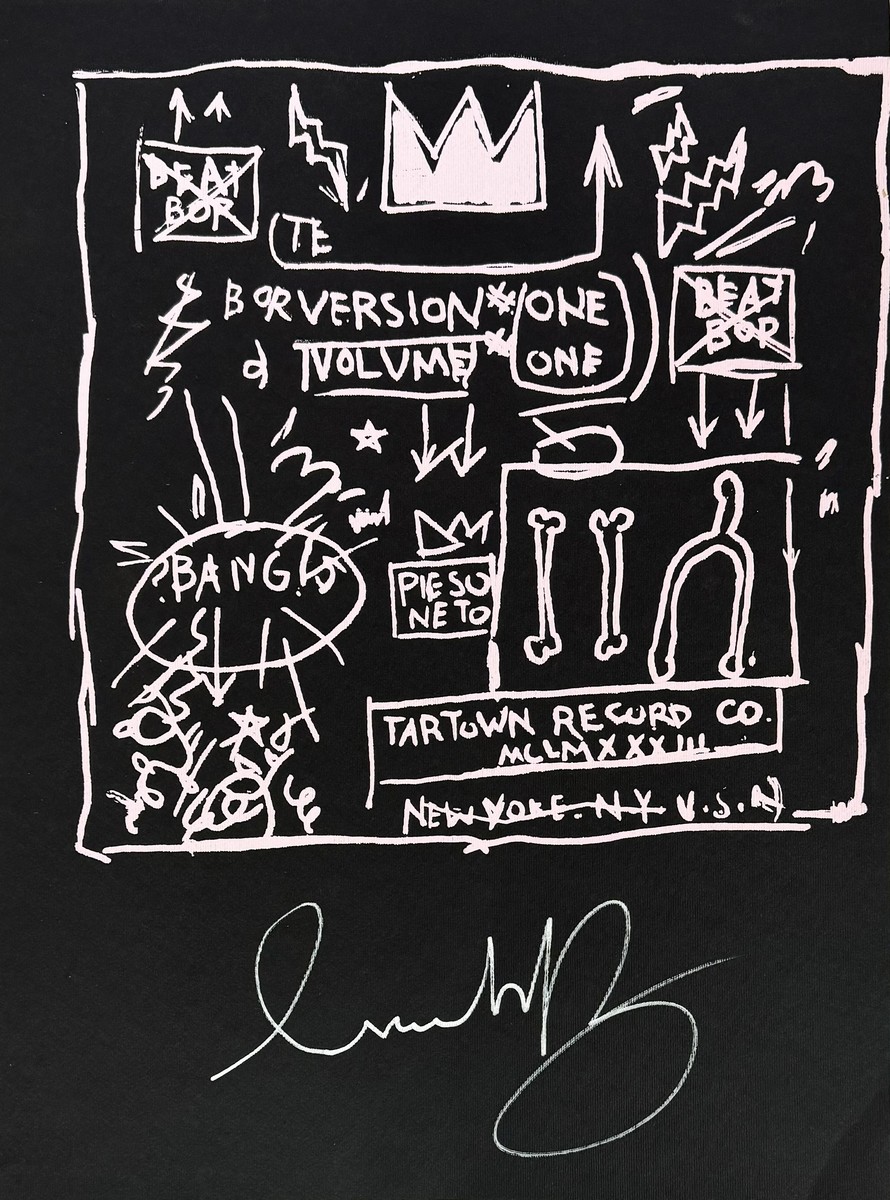 BEAT
BOR
TE
BOR VERSION * ONE
d VOLUME * ONE
BEAT
BOR
BANG!
PIESO
NETO
TARTOWN RECORD CO.
MCLMXXXIII
NEW YORE. N Y U.S.A